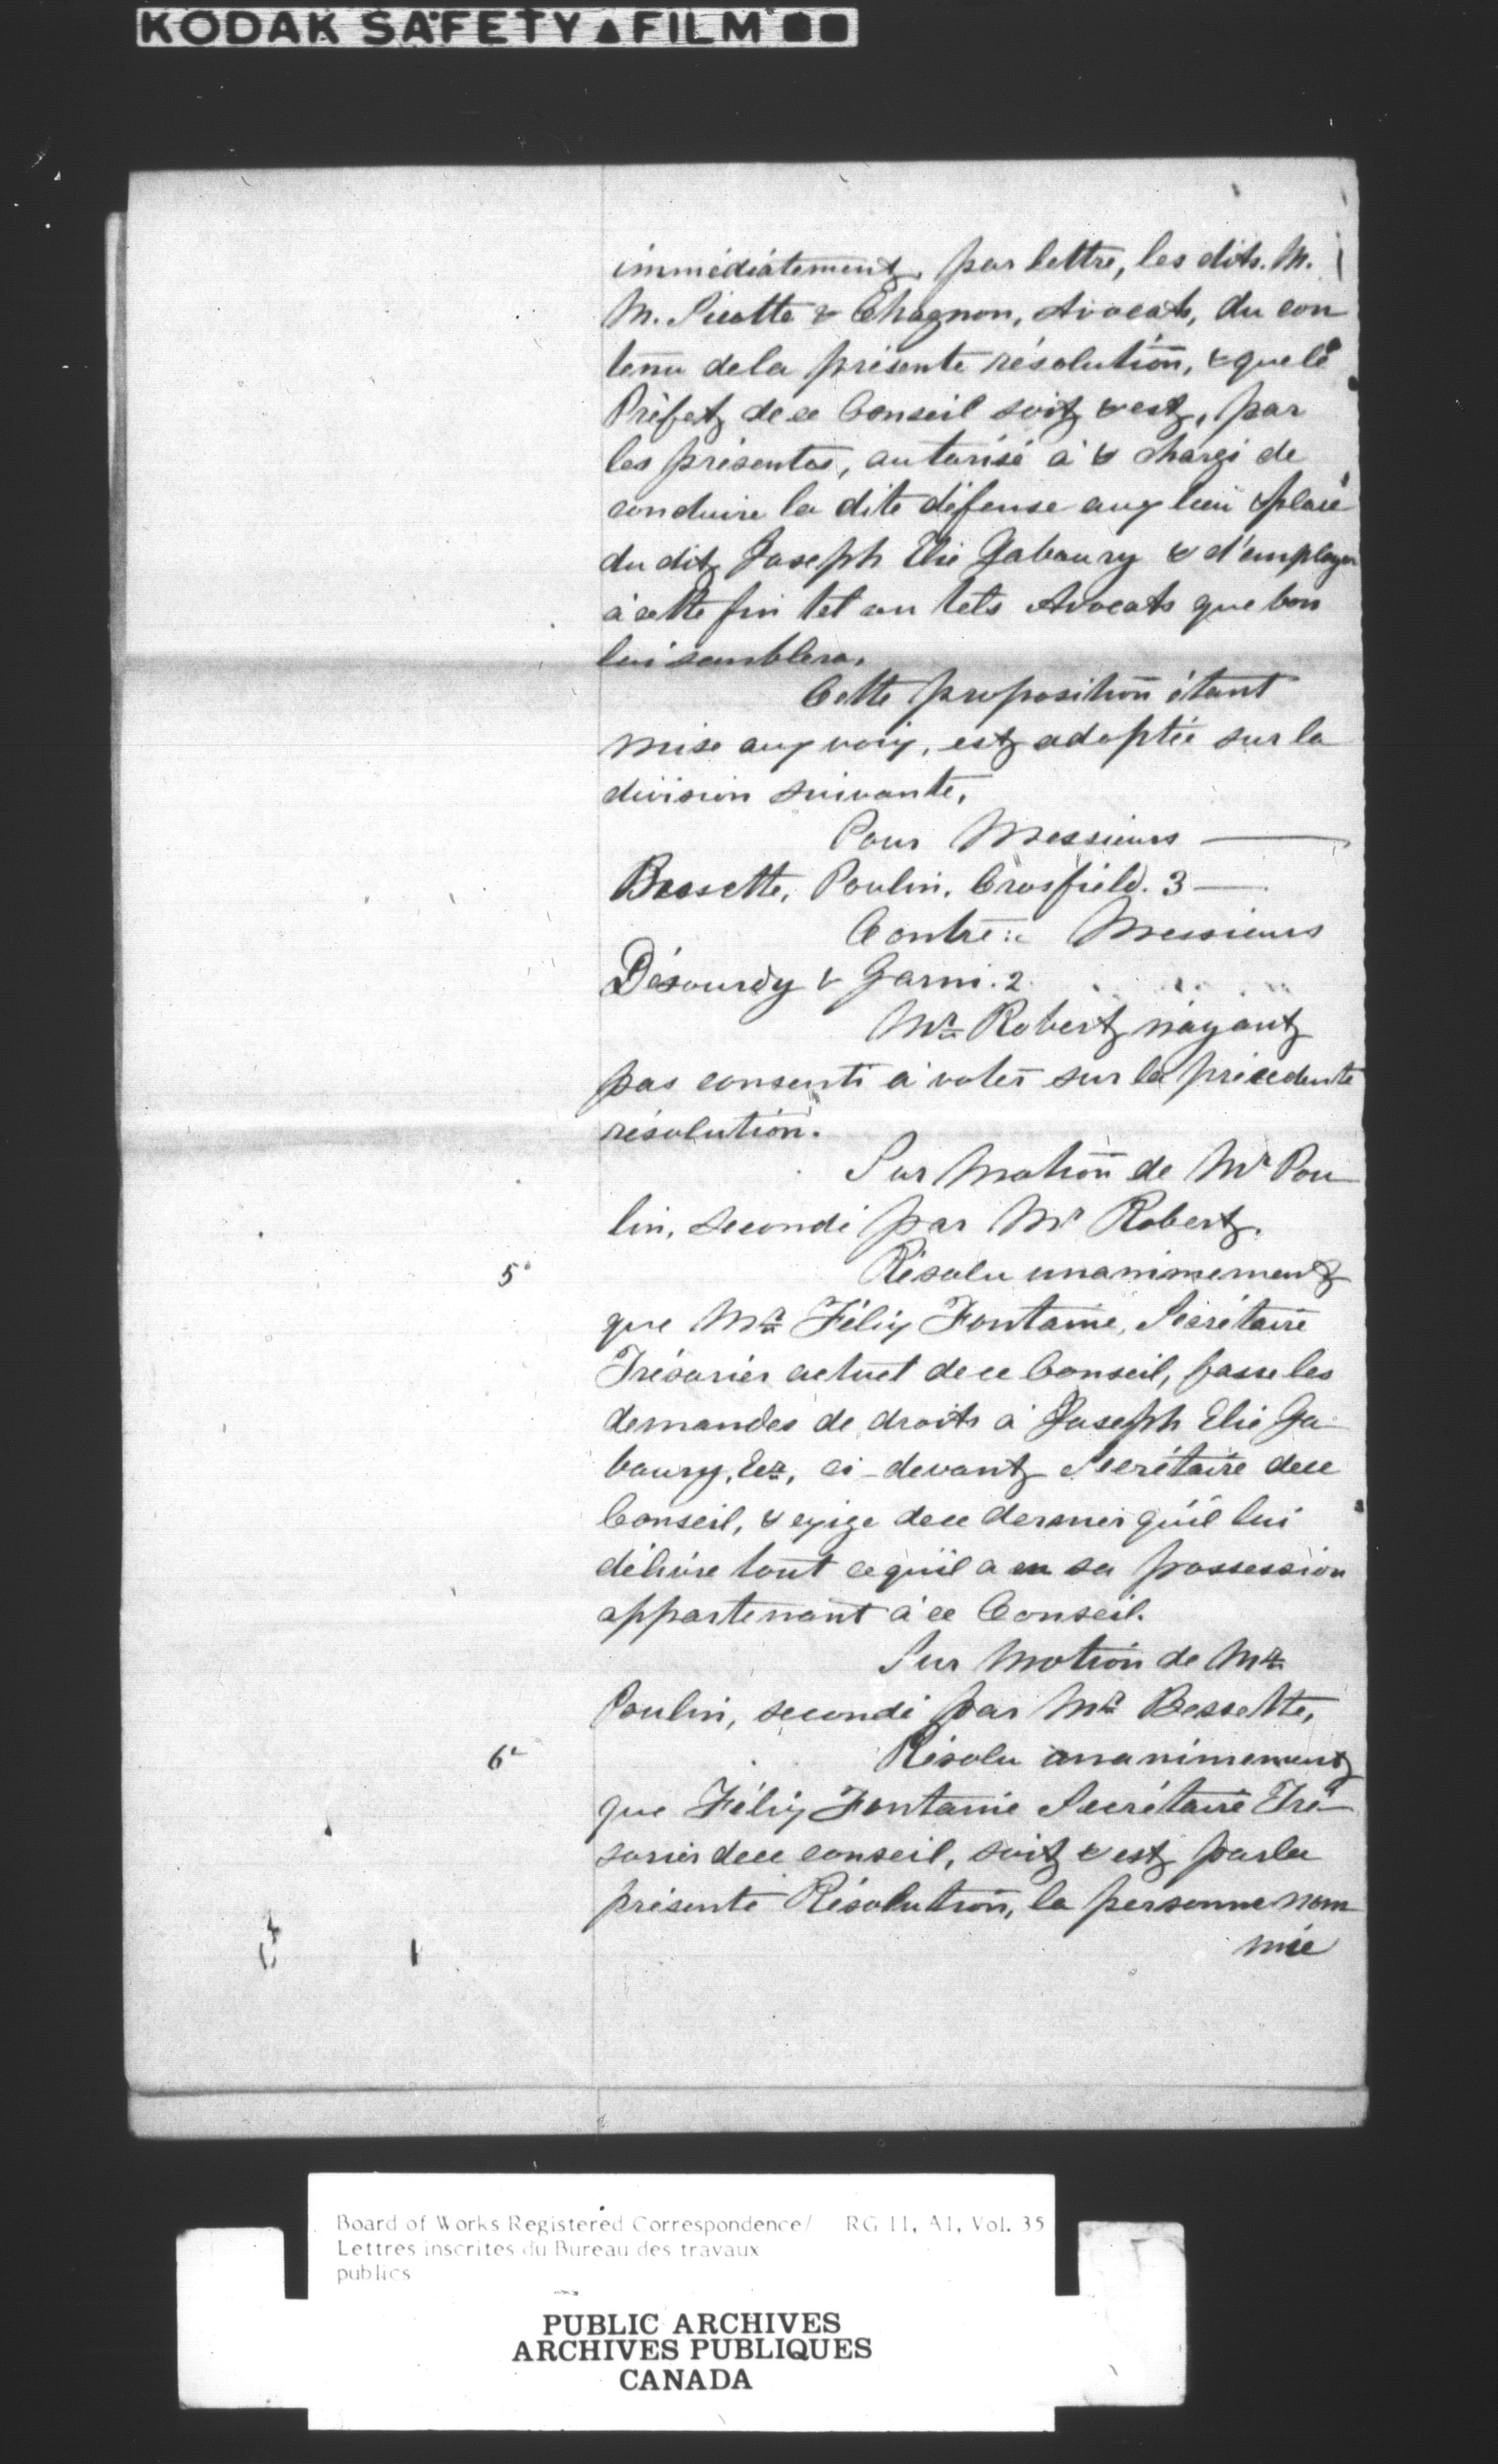 KODAK SAFETY FILM
immédiatement, par lettre, les dits. M.
M. Sicotte & Chagnon, Avocats, du con
tenu de la présente résolution, & que le
Préfet de ce Conseil soit & est, par
les présentes, autorisé à & chargé de
conduire la dite défense aux lieu & place
du dit Joseph Elie Gaboury & d'employer
à cette fin tel ou tels Avocats que bon
lui semblera.
Cette proposition étant
mise aux voix, est adoptée sur la
division suivante,
Pour Messieurs —
Bessette, Poulin, Crosfield. 3 —
Contre :: Messieurs
Désourdy & Garni. 2
Mr. Robert n'ayant
pas consenti à voter sur la précedente
résolution.
Sur Motion de Mr Pou
lin, secondé par Mr Robert.
5° Résolu unanimement
que Mr. Félix Fontaine, Secrétaire
Trésorier actuel de ce Conseil, fasse les
demandes de droits à Joseph Elie Ga-
boury, Ecr., ci-devant Secrétaire de ce
Conseil, & exige de ce dernier qu'il lui
délivre tout ce qu'il a en sa possession
appartenant à ce Conseil.
Sur Motion de Mr.
Poulin, secondé par Mr. Bessette,
6° Résolu unanimement
que Félix Fontaine Secrétaire Tré-
sorier de ce conseil, soit & est par la
présente Résolution, la personne nom
mée
Board of Works Registered Correspondence/ RG 11, A1, Vol. 35
Lettres inscrites du Bureau des travaux
publics
PUBLIC ARCHIVES
ARCHIVES PUBLIQUES
CANADA